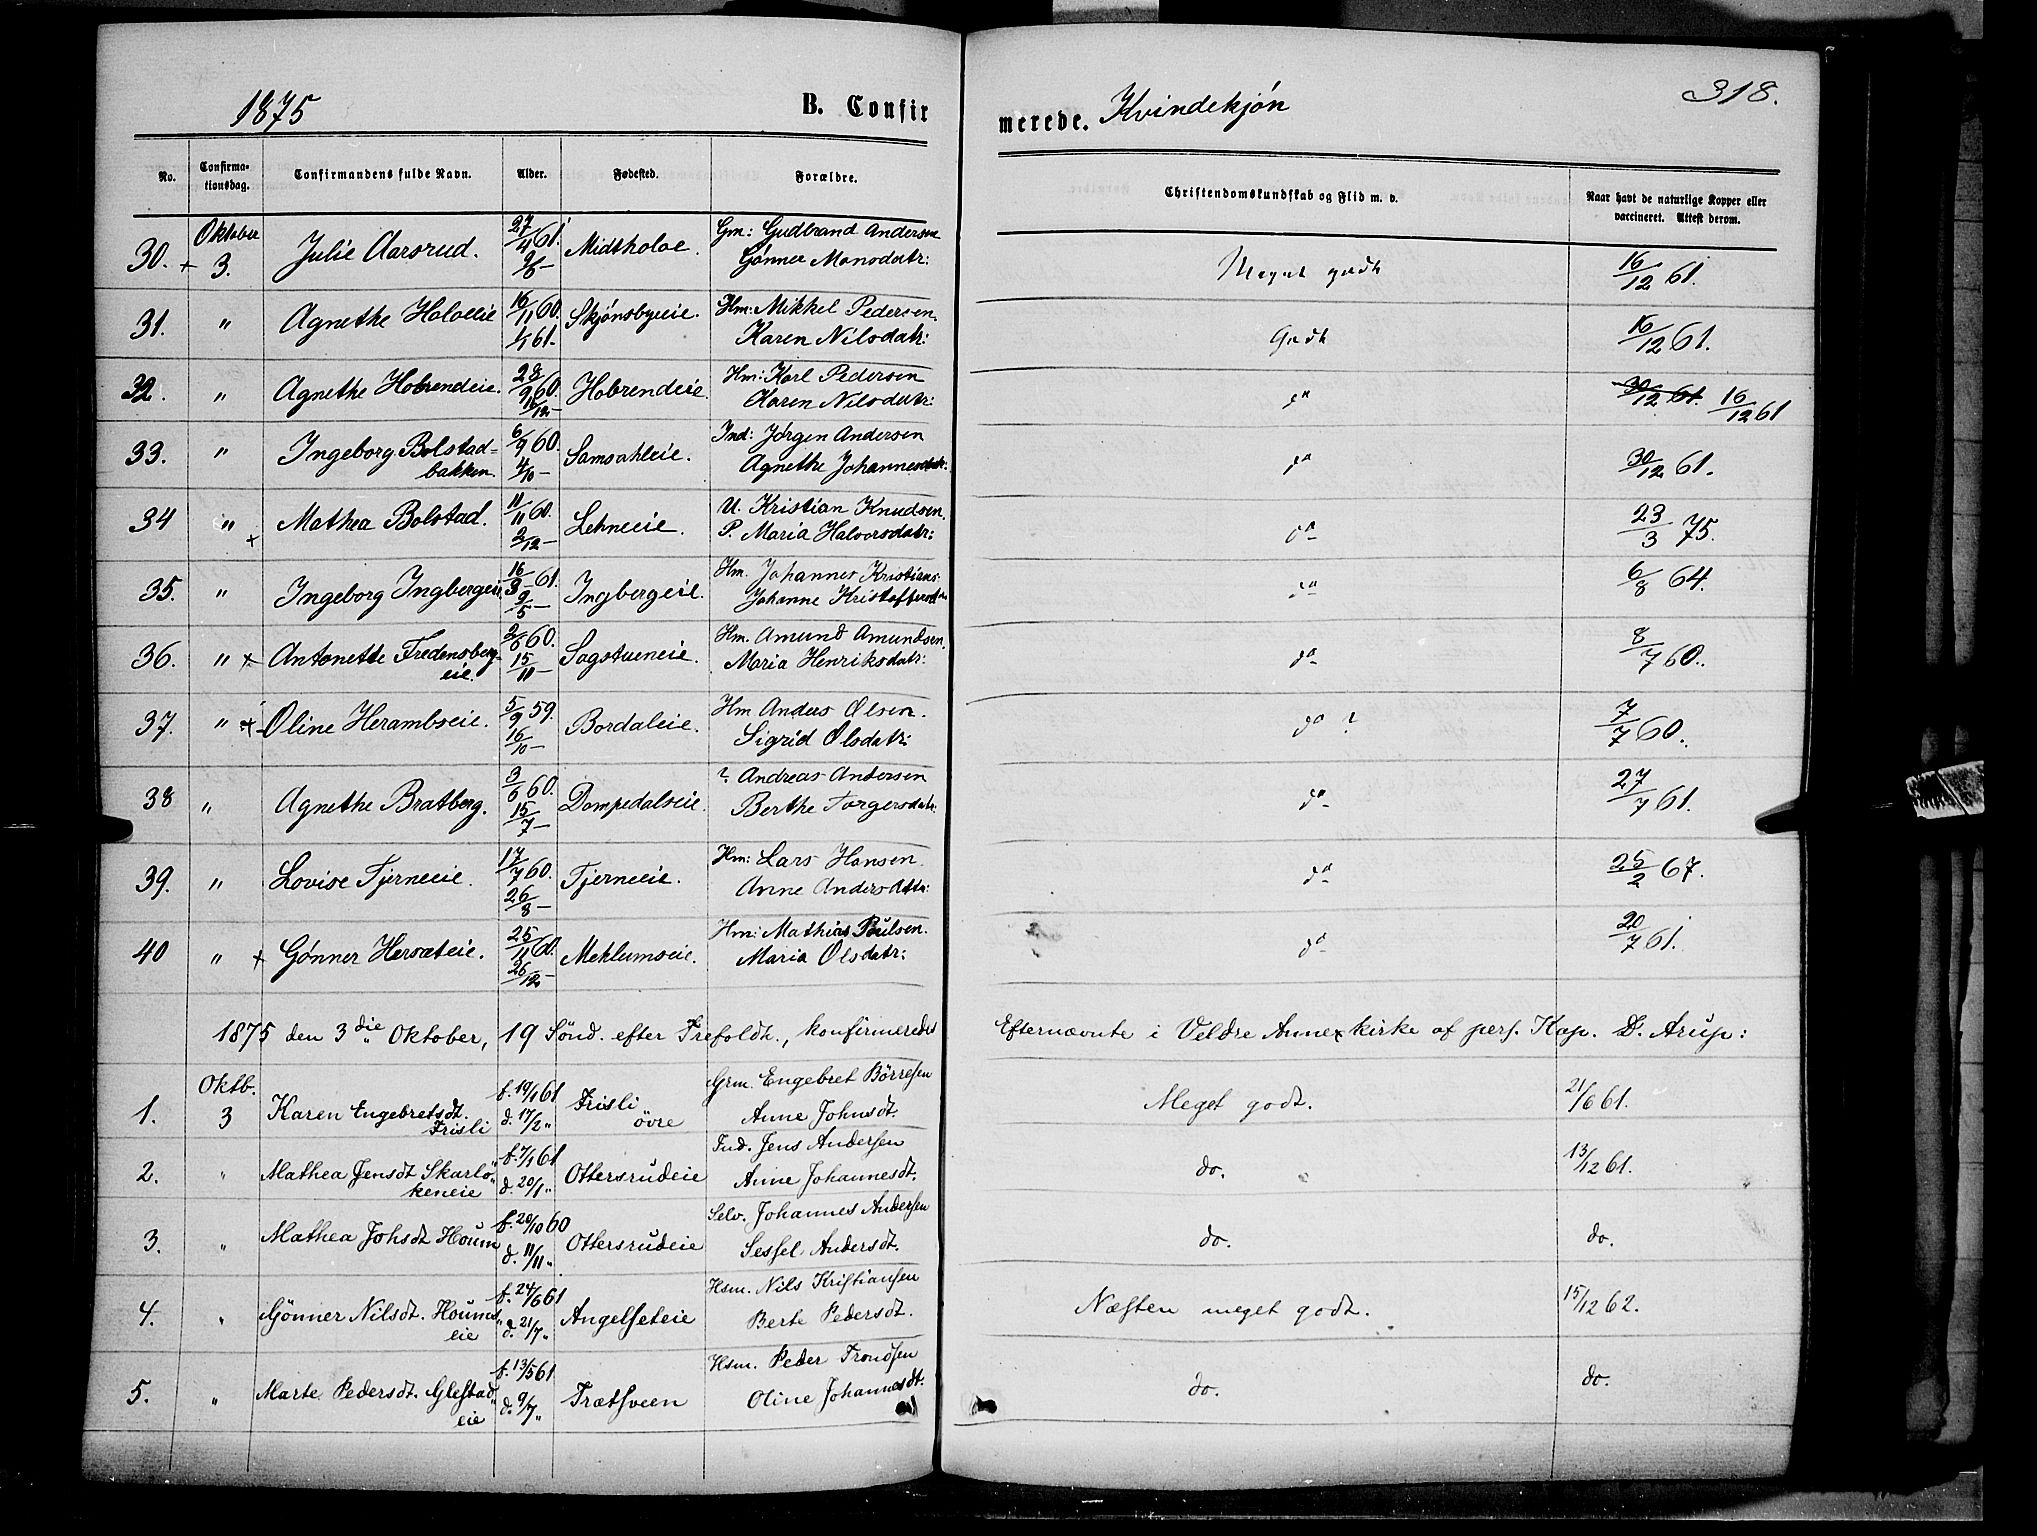 1875 B. Confirmerede. Kvindekjøn 318.
No. Confirmationsdag. Confirmandens fulde Navn. Alder. Fødested. Forældre. Christendomskundskab og Flid m. v. Naar havt de naturlige Kopper eller vaccineret. Attest derom.
Oktober 27/4 61. Gm: Gudbrand Andersen
30. + 3. Julie Aarsrud. 9/6 – Midtholoe. Gønner Monsdatr: Meget godt 16/12 61.
31. " Agnethe Holoeeie 16/11 60. Skjønsbyeie. Hm: Mikkel Pedersen.
1/1 61– Karen Nilsdatr: Godt 16/12 61.
32. " Agnethe Hobrendeie. 28/9 60. Hobrendeie. Hm: Karl Pedersen
16/12 – Karen Nilsdatr: do 30/12 61. 16/12 61
33. " Ingeborg Bolstad- 6/9 60. Samsahleie. Ind: Jørgen Andersen
bakken 4/10 – Agnethe Johannesdatr. do 30/12 61.
34 " + Mathea Bolstad. 11/11 60. Lehneeie. U. Kristian Knudsen.
2/12 – P. Maria Halvorsdatr: do 23/3 75.
35. " Ingeborg Ingbergeie 16/3 61. Ingbergeie. Hm. Johannes Kristians:
9/5 – Johanne Kristoffersdtr do 6/8 64.
36. " + Antonette Fredensberg- 60. Sagstueneie. Hm. Amund Amundsen.
eie. 15/11 – Maria Henriksdatr: do 8/7 60.
37. " + Oline Herambseie. 5/9 59. Bordaleie. Hm Anders Olsen.
16/10 – Sigrid Olsdatr: do ? 7/7 60.
38 " Agnethe Bratberg. 3/6 60. Dompedalseie. ? Andreas Andersen
15/7 – Berthe Torgersdatr. do 27/7 61.
39. " Lovise Tjerneeie. 17/7 60. Tjerneeie. Hm: Lars Hansen.
26/8 – Anne Andersdttr: do 25/2 67.
40 " + Gønner Hersæteie. 25/11 60. Mehlumseie. Hm: Mathias Poulsen.
26/12 – Maria Olsdatr: do 20/7 61.
1875 den 3die Oktober, 19 Sönd. efter Trefoldt., konfirmeredes Efternævnte i Veldre Annexkirke af pers. Kap. D. Arup:
Oktb. f. 19/1 61 Grm. Engebret Börresen
1. 3 Karen Engebretsdt. Frisli d. 17/2 " Frisli övre Anne Johnsdt. Meget godt. 21/6 61.
2. " Mathea Jensdt Skarlö- f. 7/1 61 Ottersrudeie Ind. Jens Andersen
keneie d. 20/1 " Anne Johannesdt. do. 13/12 61.
3. " Mathea Johsdt Houm f. 20/10 60 Ottersrudeie Selv. Johannes Andersen
d. 11/11 " Sessel Andersdt. do. do.
4. " Gönner Nilsdt. Houms- f. 24/6 61 Angelseteie Hsm. Nils Kristiansen
eie d. 21/7 " Berte Pedersdt. Næsten meget godt. 15/12 62.
5. " Marte Pedersdt. Glestad- f. 13/5 61 Trætsveen Hsm. Peder Trondsen
eie d. 9/7 " Oline Johannesdt. do. do.